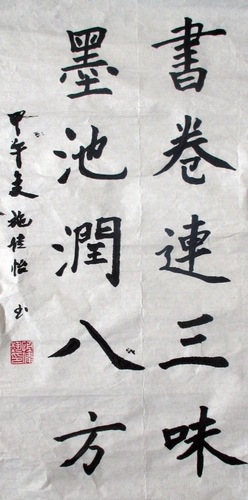 書卷連三味
墨池潤八方
甲午夏施佳怡书